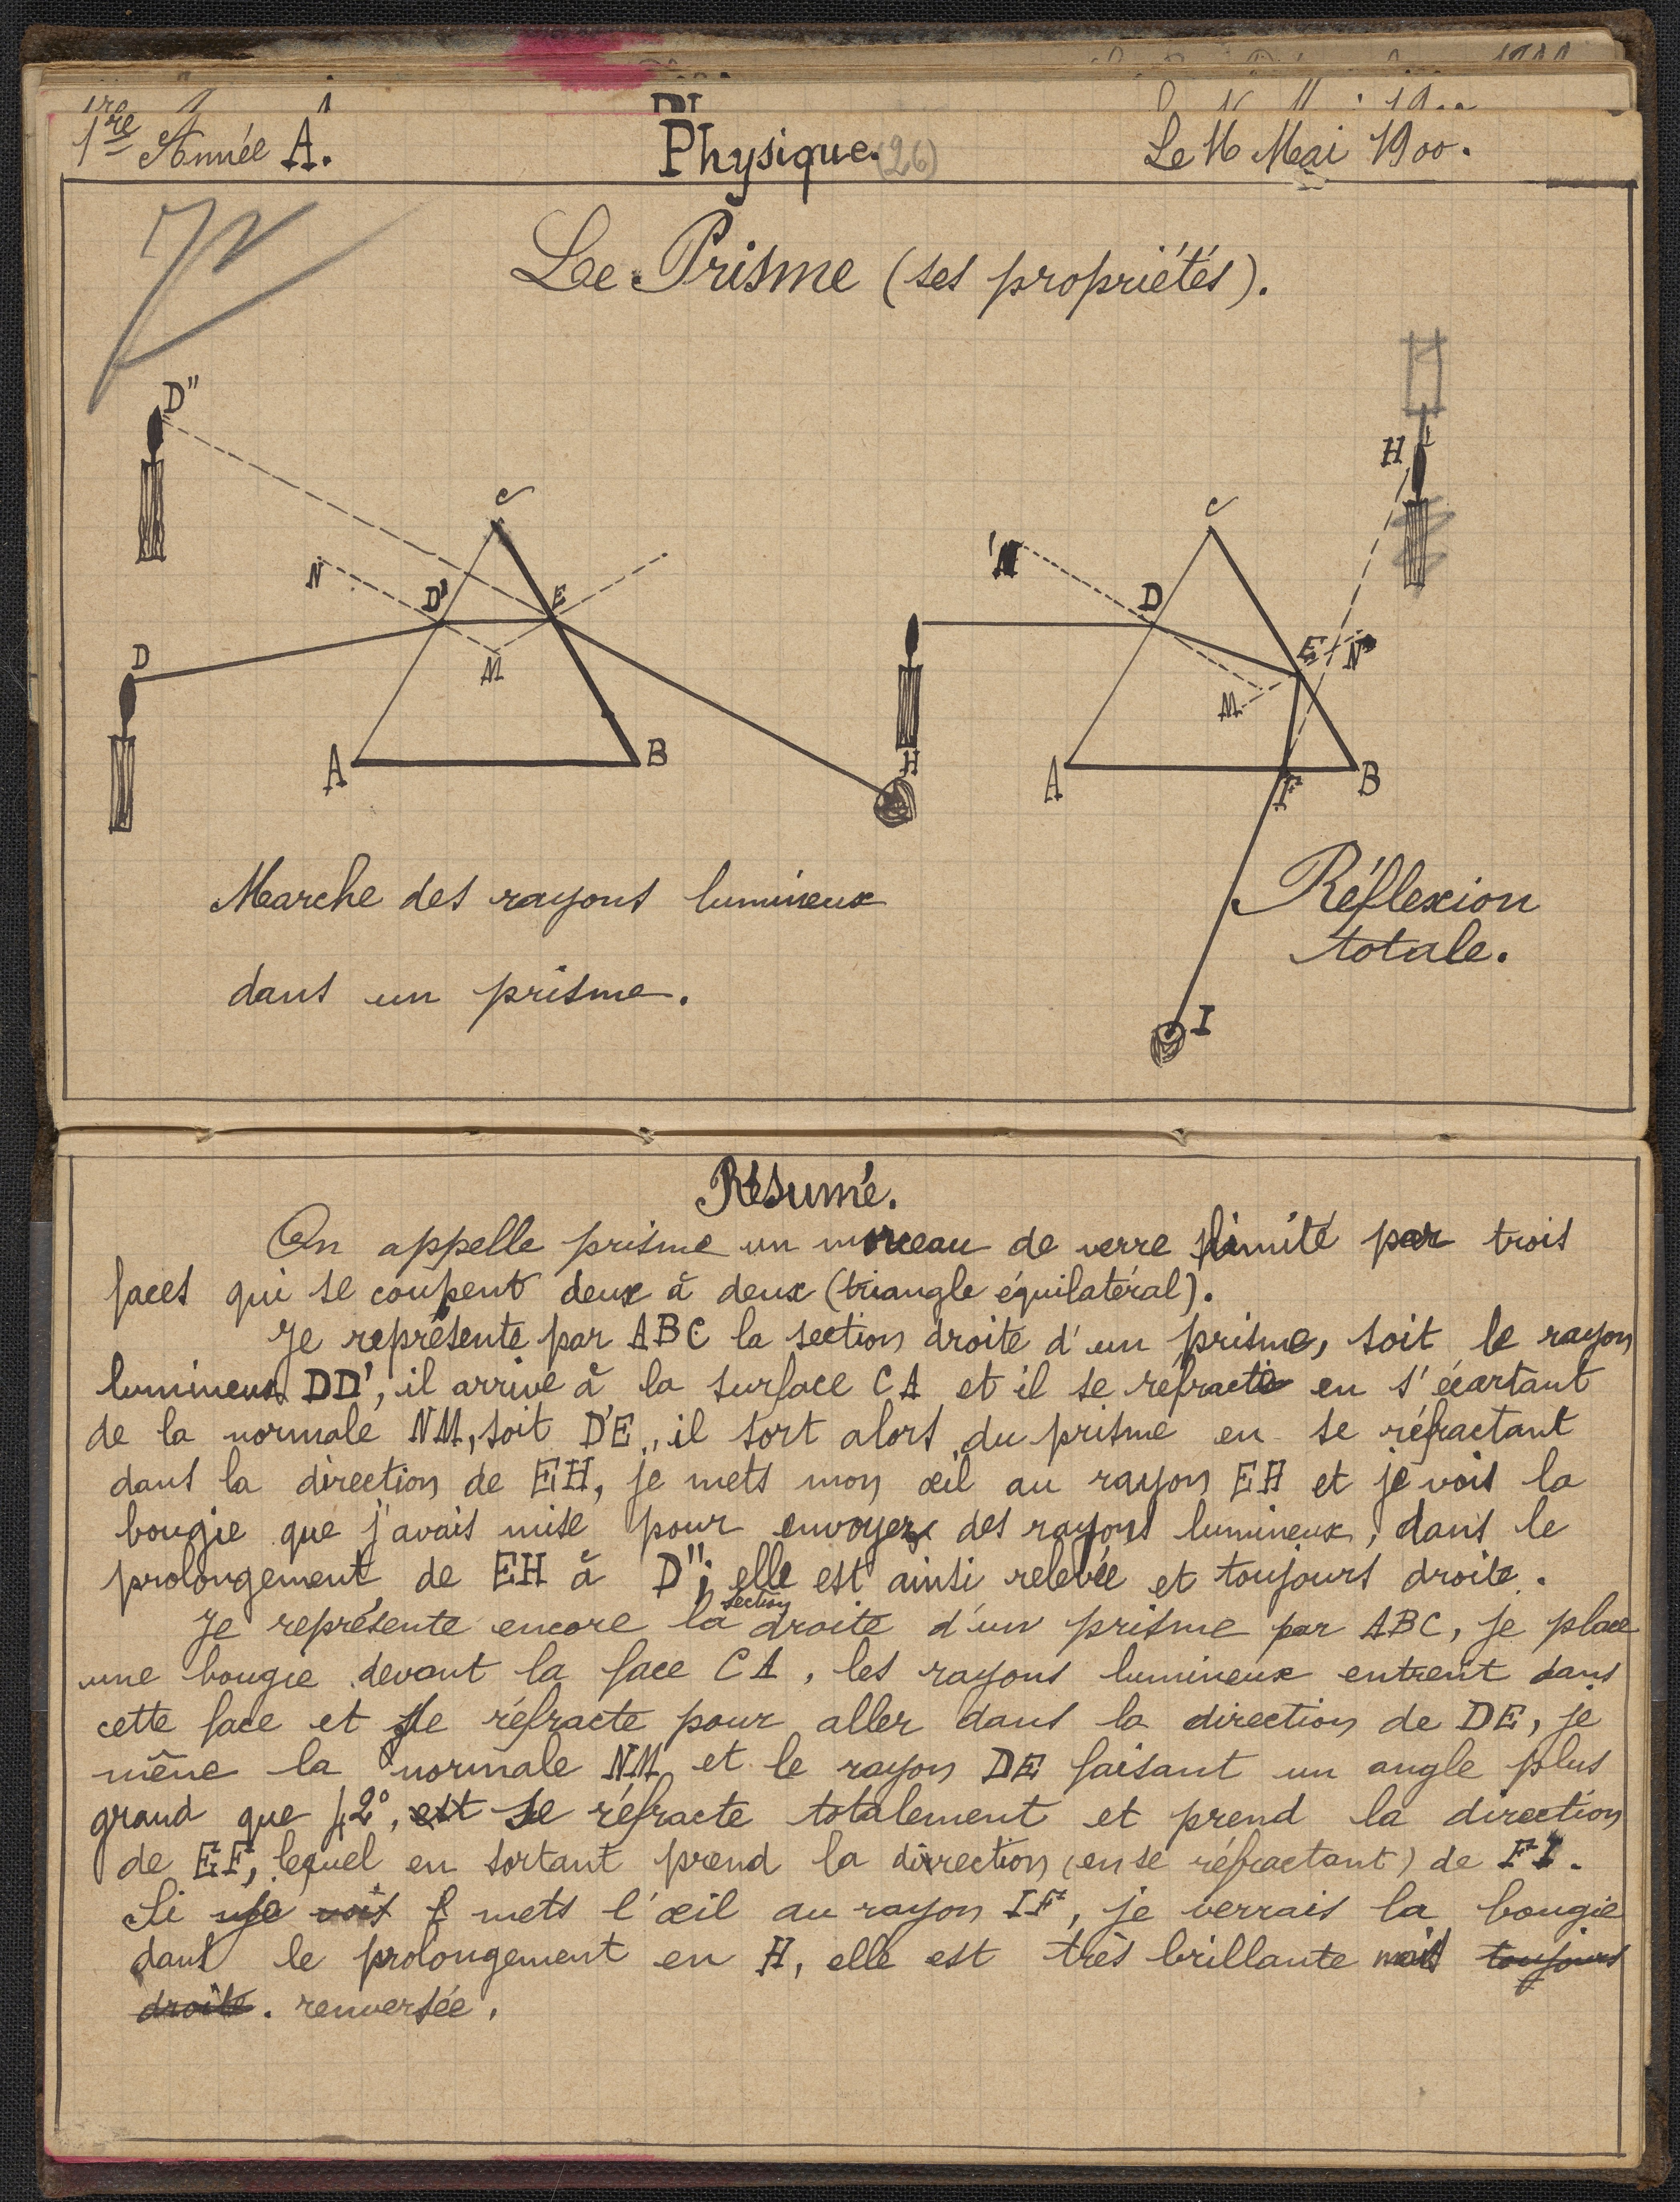 1re Année A.
Physique. (26)
Le 16 Mai 1900.
Le Prisme (ses propriétés).
D"
C
N
D'
E
M
D
A
B
H
H
C
N
D
E
N
M
A
F
B
I
Marche des rayons lumineux
dans un prisme.
Réflexion
totale.
Résumé.
On appelle prisme un morceau de verre limité par trois
faces qui se coupent deux à deux (triangle équilatéral).
Je représente par ABC la section droite d'un prisme, soit le rayon
lumineux DD', il arrive à la surface CA et il se réfracte en s'écartant
de la normale NM, soit D'E, il sort alors du prisme en se réfractant
dans la direction de EH, je mets mon œil au rayon EH et je vois la
bougie que j'avais mise pour envoyer des rayons lumineux, dans le
prolongement de EH à D"; elle est ainsi relevée et toujours droite.
Je représente encore la section droite d'un prisme par ABC, je place
une bougie devant la face CA, les rayons lumineux entrent dans
cette face et se réfracte pour aller dans la direction de DE, je
mêne la normale NM et le rayon DE faisant un angle plus
grand que 42°, est se réfracte totalement et prend la direction
de EF, lequel en sortant prend la direction (en se réfractant) de FI.
Si je vois mets l'œil au rayon IF, je verrais la bougie
dans le prolongement en H, elle est très brillante mais toujours
droite. renversée.